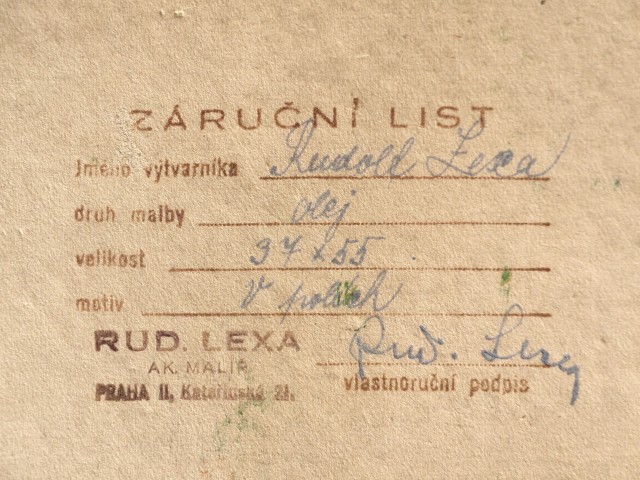 ZÁRUČNÍ LIST
Jméno výtvarníka Rudolf Lexa
druh malby olej
velikost 37 x 55.
motiv V polích
RUD. LEXA Rud. Lexa
AK. MALÍŘ
PRAHA II, Kateřinská 21. vlastnoruční podpis